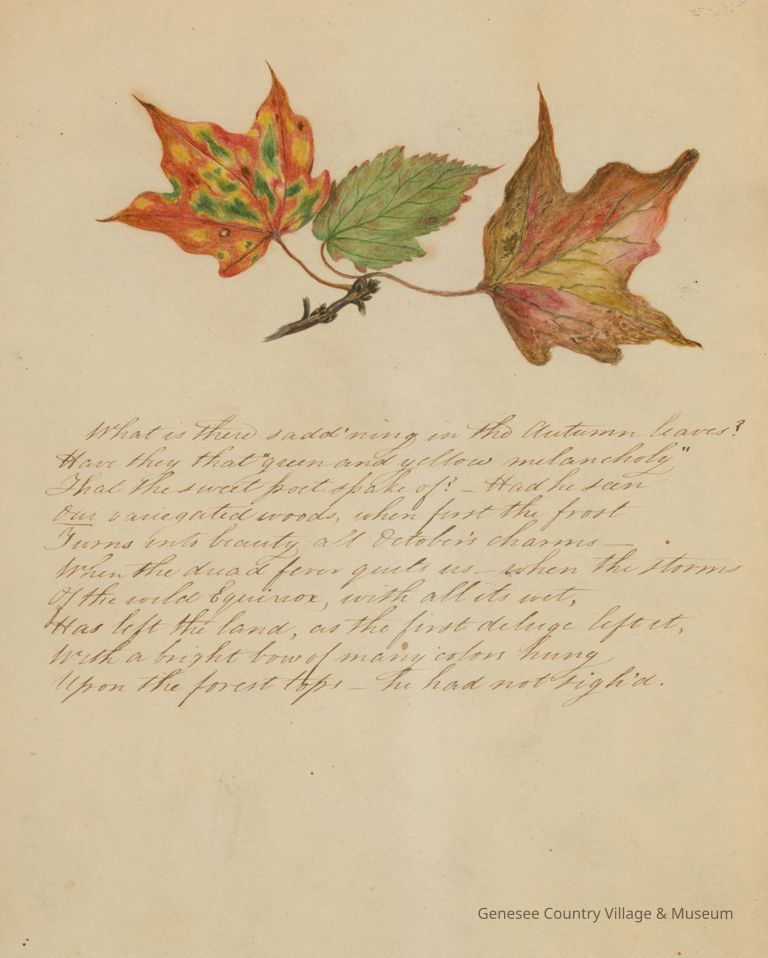 What is there sadd'ning in the Autumn leaves?
Have they that "green and yellow melancholy"
That the sweet poet spake of? – Had he seen
Our variegated woods, when first the frost
Turns into beauty all October's charms –
When the dread fever quits us – when the storms
Of the wild Equinox, with all its wet,
Has left the land, as the first deluge left it,
With a bright bow of many colors hung
Upon the forest tops – he had not sigh'd.
Genesee Country Village & Museum